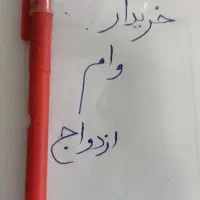 خریدار
وام
ازدواج